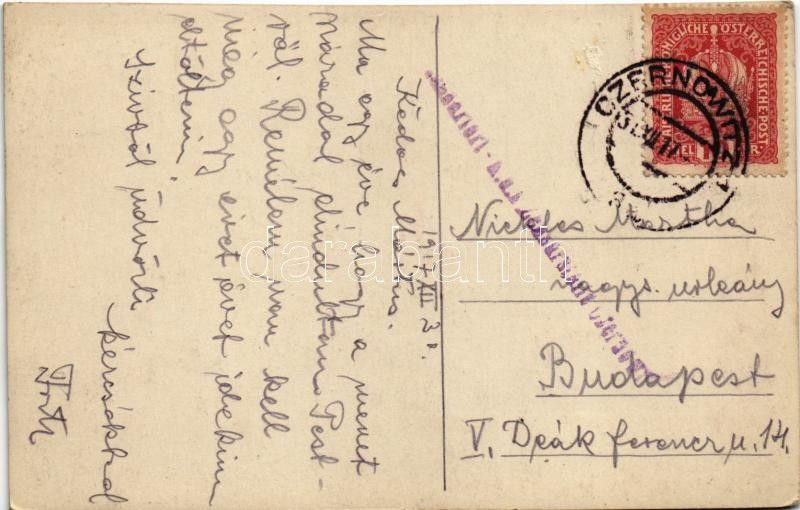 1917 XII 30.
Kedves Mártus.
Ma egy éve hogy a menet
századdal elindultam Pest-
ről. Remélem nem kell
még egy évet évet idekinn
eltölteni.
Szívből üdvözli kézcsókkal
KAISERLICHE KÖNIGLICHE ÖSTERREICHISCHE POST
CZERNOWITZ
Nickles Martha
nagys. urleány
Budapest
V. Deák ferencz u. 14.
darabanth